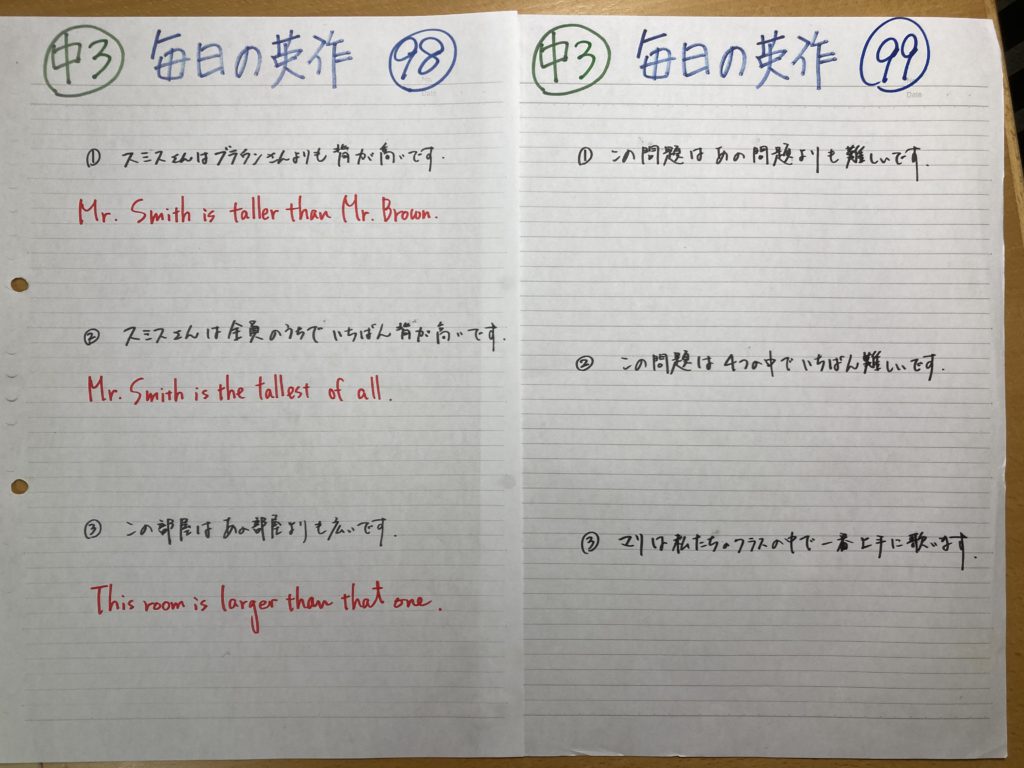 中3 毎日の英作 98
Date
① スミスさんはブラウンさんよりも背が高いです.
Mr. Smith is taller than Mr. Brown.
② スミスさんは全員のうちでいちばん背が高いです.
Mr. Smith is the tallest of all.
③ この部屋はあの部屋よりも広いです.
This room is larger than that one.
中3 毎日の英作 99
Date
① この問題はあの問題よりも難しいです.
② この問題は4つの中でいちばん難しいです.
③ マリは私たちのクラスの中で一番上手に歌います.